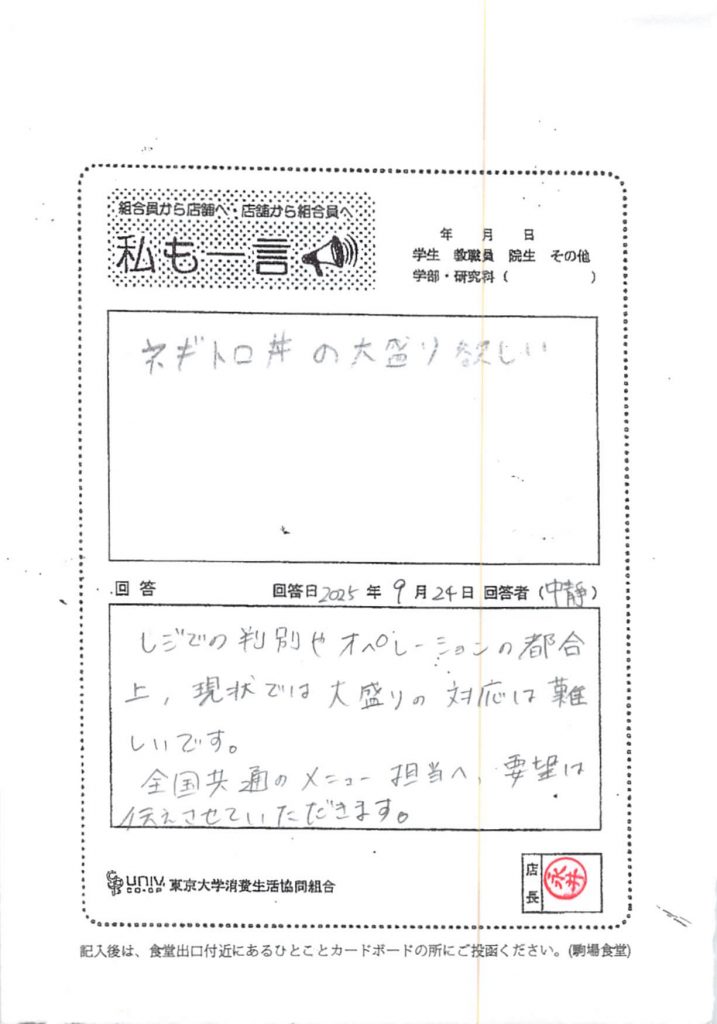 組合員から店舗へ・店舗から組合員へ
私も一言
年 月 日
学生 教職員 院生 その他
学部・研究科（ ）
ネギトロ丼の大盛り欲しい
回答 回答日2025年9月24日 回答者（中静）
レジでの判別やオペレーションの都合
上，現状では大盛りの対応は難
しいです。
全国共通のメニュー担当へ，要望は
伝えさせていただきます。
univ. CO-OP 東京大学消費生活協同組合
店長
永井
記入後は、食堂出口付近にあるひとことカードボードの所にご投函ください。(駒場食堂)